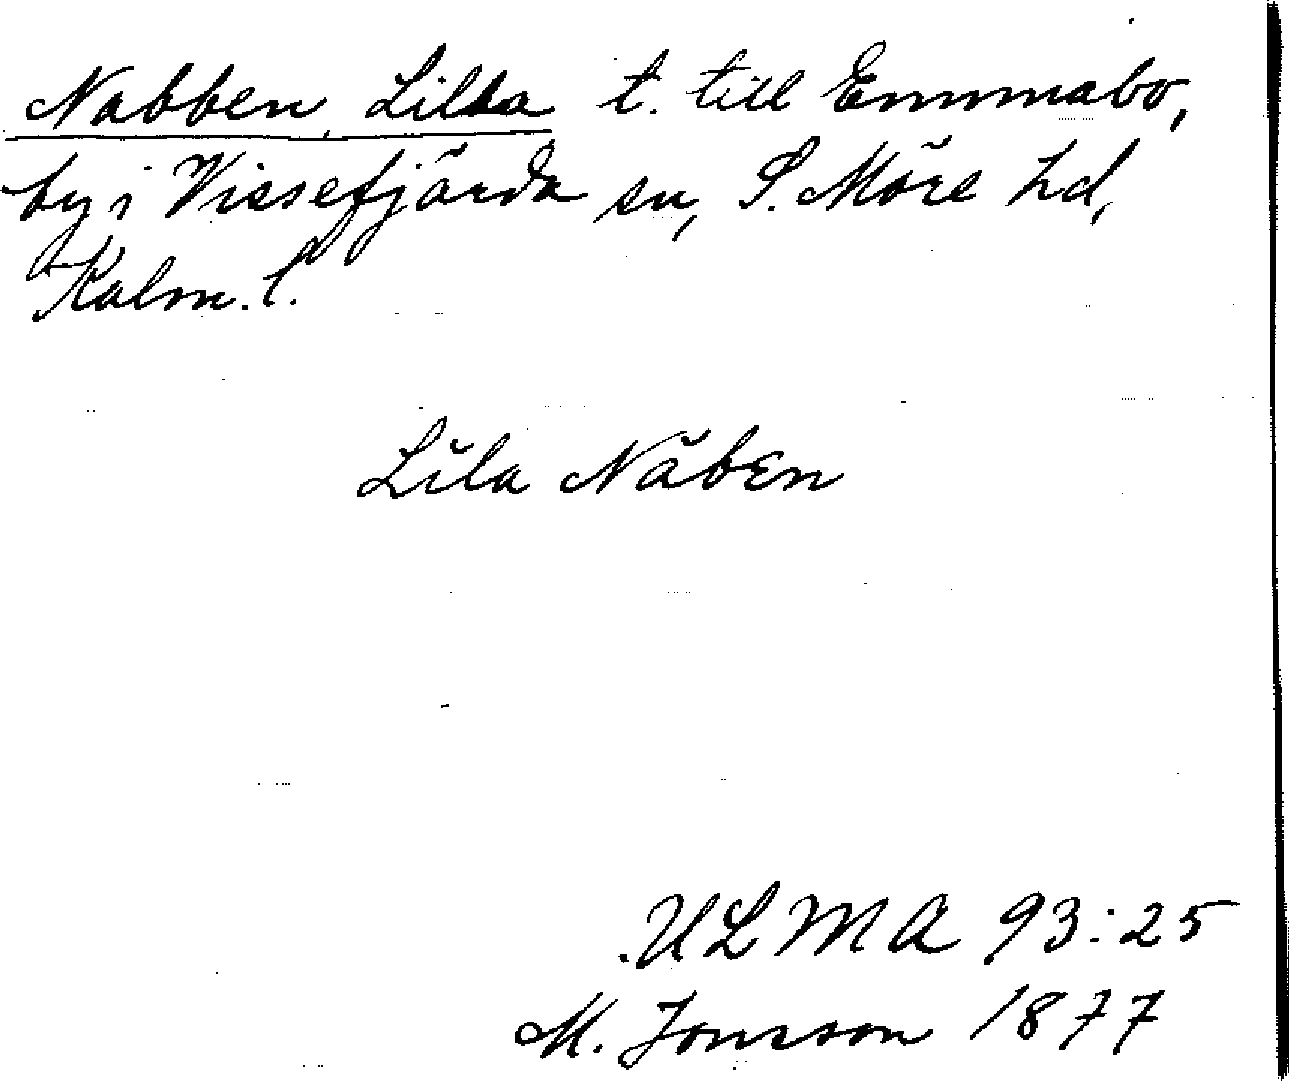 Nabben, Lilla t. till Emmabo,
by i Vissefjärda sn, S. Möre hd,
Kalm. l.
Lĭla Năben
ULMA 93:25
M. Jonsson 1877